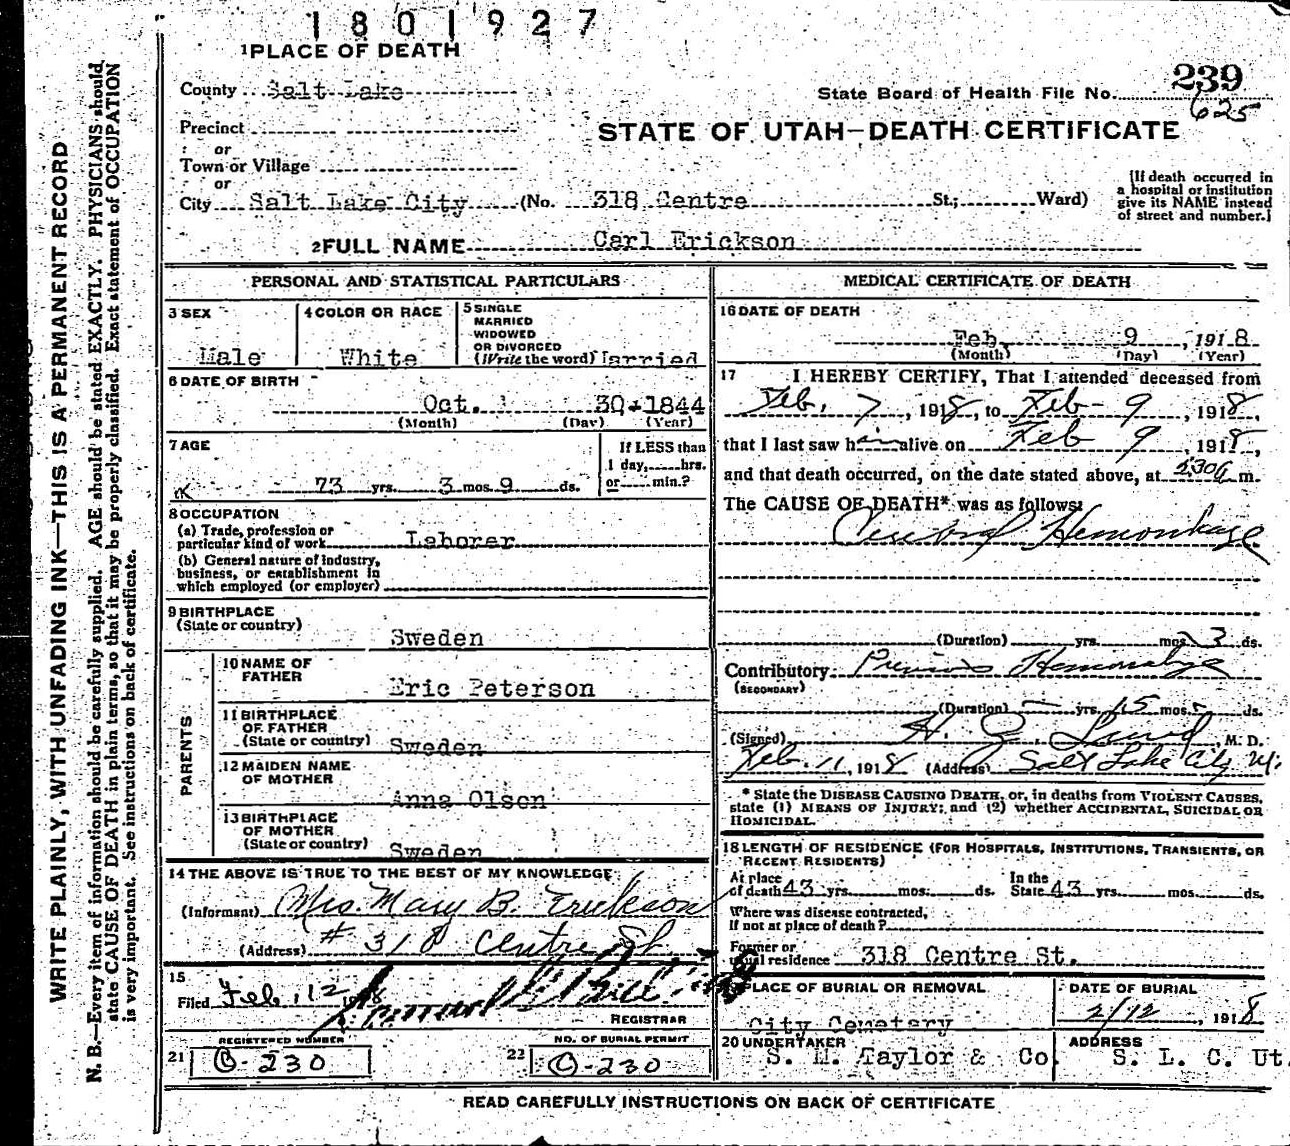 1801927
1 PLACE OF DEATH
County Salt Lake
State Board of Health File No. 239
625
Precinct
or
STATE OF UTAH—DEATH CERTIFICATE
Town or Village
or
City Salt Lake City (No. 318 Centre St.; Ward)
[If death occurred in a hospital or institution give its NAME instead of street and number.]
2 FULL NAME Carl Erickson
PERSONAL AND STATISTICAL PARTICULARS
3 SEX
Male
4 COLOR OR RACE
White
5 SINGLE
MARRIED
WIDOWED
OR DIVORCED
(Write the word) Married
6 DATE OF BIRTH
Oct. 30 - 1844
(Month) (Day) (Year)
7 AGE
73 yrs. 3 mos. 9 ds.
If LESS than
1 day, hrs.
or min.?
8 OCCUPATION
(a) Trade, profession or
particular kind of work Laborer
(b) General nature of industry,
business, or establishment in
which employed (or employer)
9 BIRTHPLACE
(State or country)
Sweden
PARENTS
10 NAME OF
FATHER
Eric Peterson
11 BIRTHPLACE
OF FATHER
(State or country) Sweden
12 MAIDEN NAME
OF MOTHER
Anna Olson
13 BIRTHPLACE
OF MOTHER
(State or country) Sweden
14 THE ABOVE IS TRUE TO THE BEST OF MY KNOWLEDGE
(Informant) Mrs. Mary B. Erickson
(Address) # 318 Centre St
15
Filed Feb. 12 1918
REGISTRAR
REGISTERED NUMBER
21 C-230
NO. OF BURIAL PERMIT
22 C-230
MEDICAL CERTIFICATE OF DEATH
16 DATE OF DEATH
Feb. 9, 1918
(Month) (Day) (Year)
17 I HEREBY CERTIFY, That I attended deceased from
Feb. 7, 1918, to Feb - 9, 1918,
that I last saw him alive on Feb 9, 1918,
and that death occurred, on the date stated above, at m.
The CAUSE OF DEATH* was as follows:
Cerebral Hemorrhage
(Duration) yrs. mos. 3 ds.
Contributory Previous Hemorrhage
(SECONDARY)
(Duration) yrs. 15 mos. ds.
(Signed) H. Z. Lund, M. D.
Feb. 11, 1918 (Address) Salt Lake City Ut.
* State the DISEASE CAUSING DEATH, or, in deaths from VIOLENT CAUSES,
state (1) MEANS OF INJURY; and (2) whether ACCIDENTAL, SUICIDAL OR
HOMICIDAL.
18 LENGTH OF RESIDENCE (FOR HOSPITALS, INSTITUTIONS, TRANSIENTS, OR
RECENT RESIDENTS)
At place
of death 43 yrs. mos. ds.
In the
State 43 yrs. mos. ds.
Where was disease contracted,
if not at place of death?
Former or
usual residence 318 Centre St.
PLACE OF BURIAL OR REMOVAL
City Cemetery
DATE OF BURIAL
2/12, 1918
20 UNDERTAKER
S. M. Taylor & Co.
ADDRESS
S. L. C. Ut.
READ CAREFULLY INSTRUCTIONS ON BACK OF CERTIFICATE
WRITE PLAINLY, WITH UNFADING INK—THIS IS A PERMANENT RECORD
N. B.—Every item of information should be carefully supplied. AGE should be stated EXACTLY. PHYSICIANS should
state CAUSE OF DEATH in plain terms, so that it may be properly classified. Exact statement of OCCUPATION
is very important. See instructions on back of certificate.